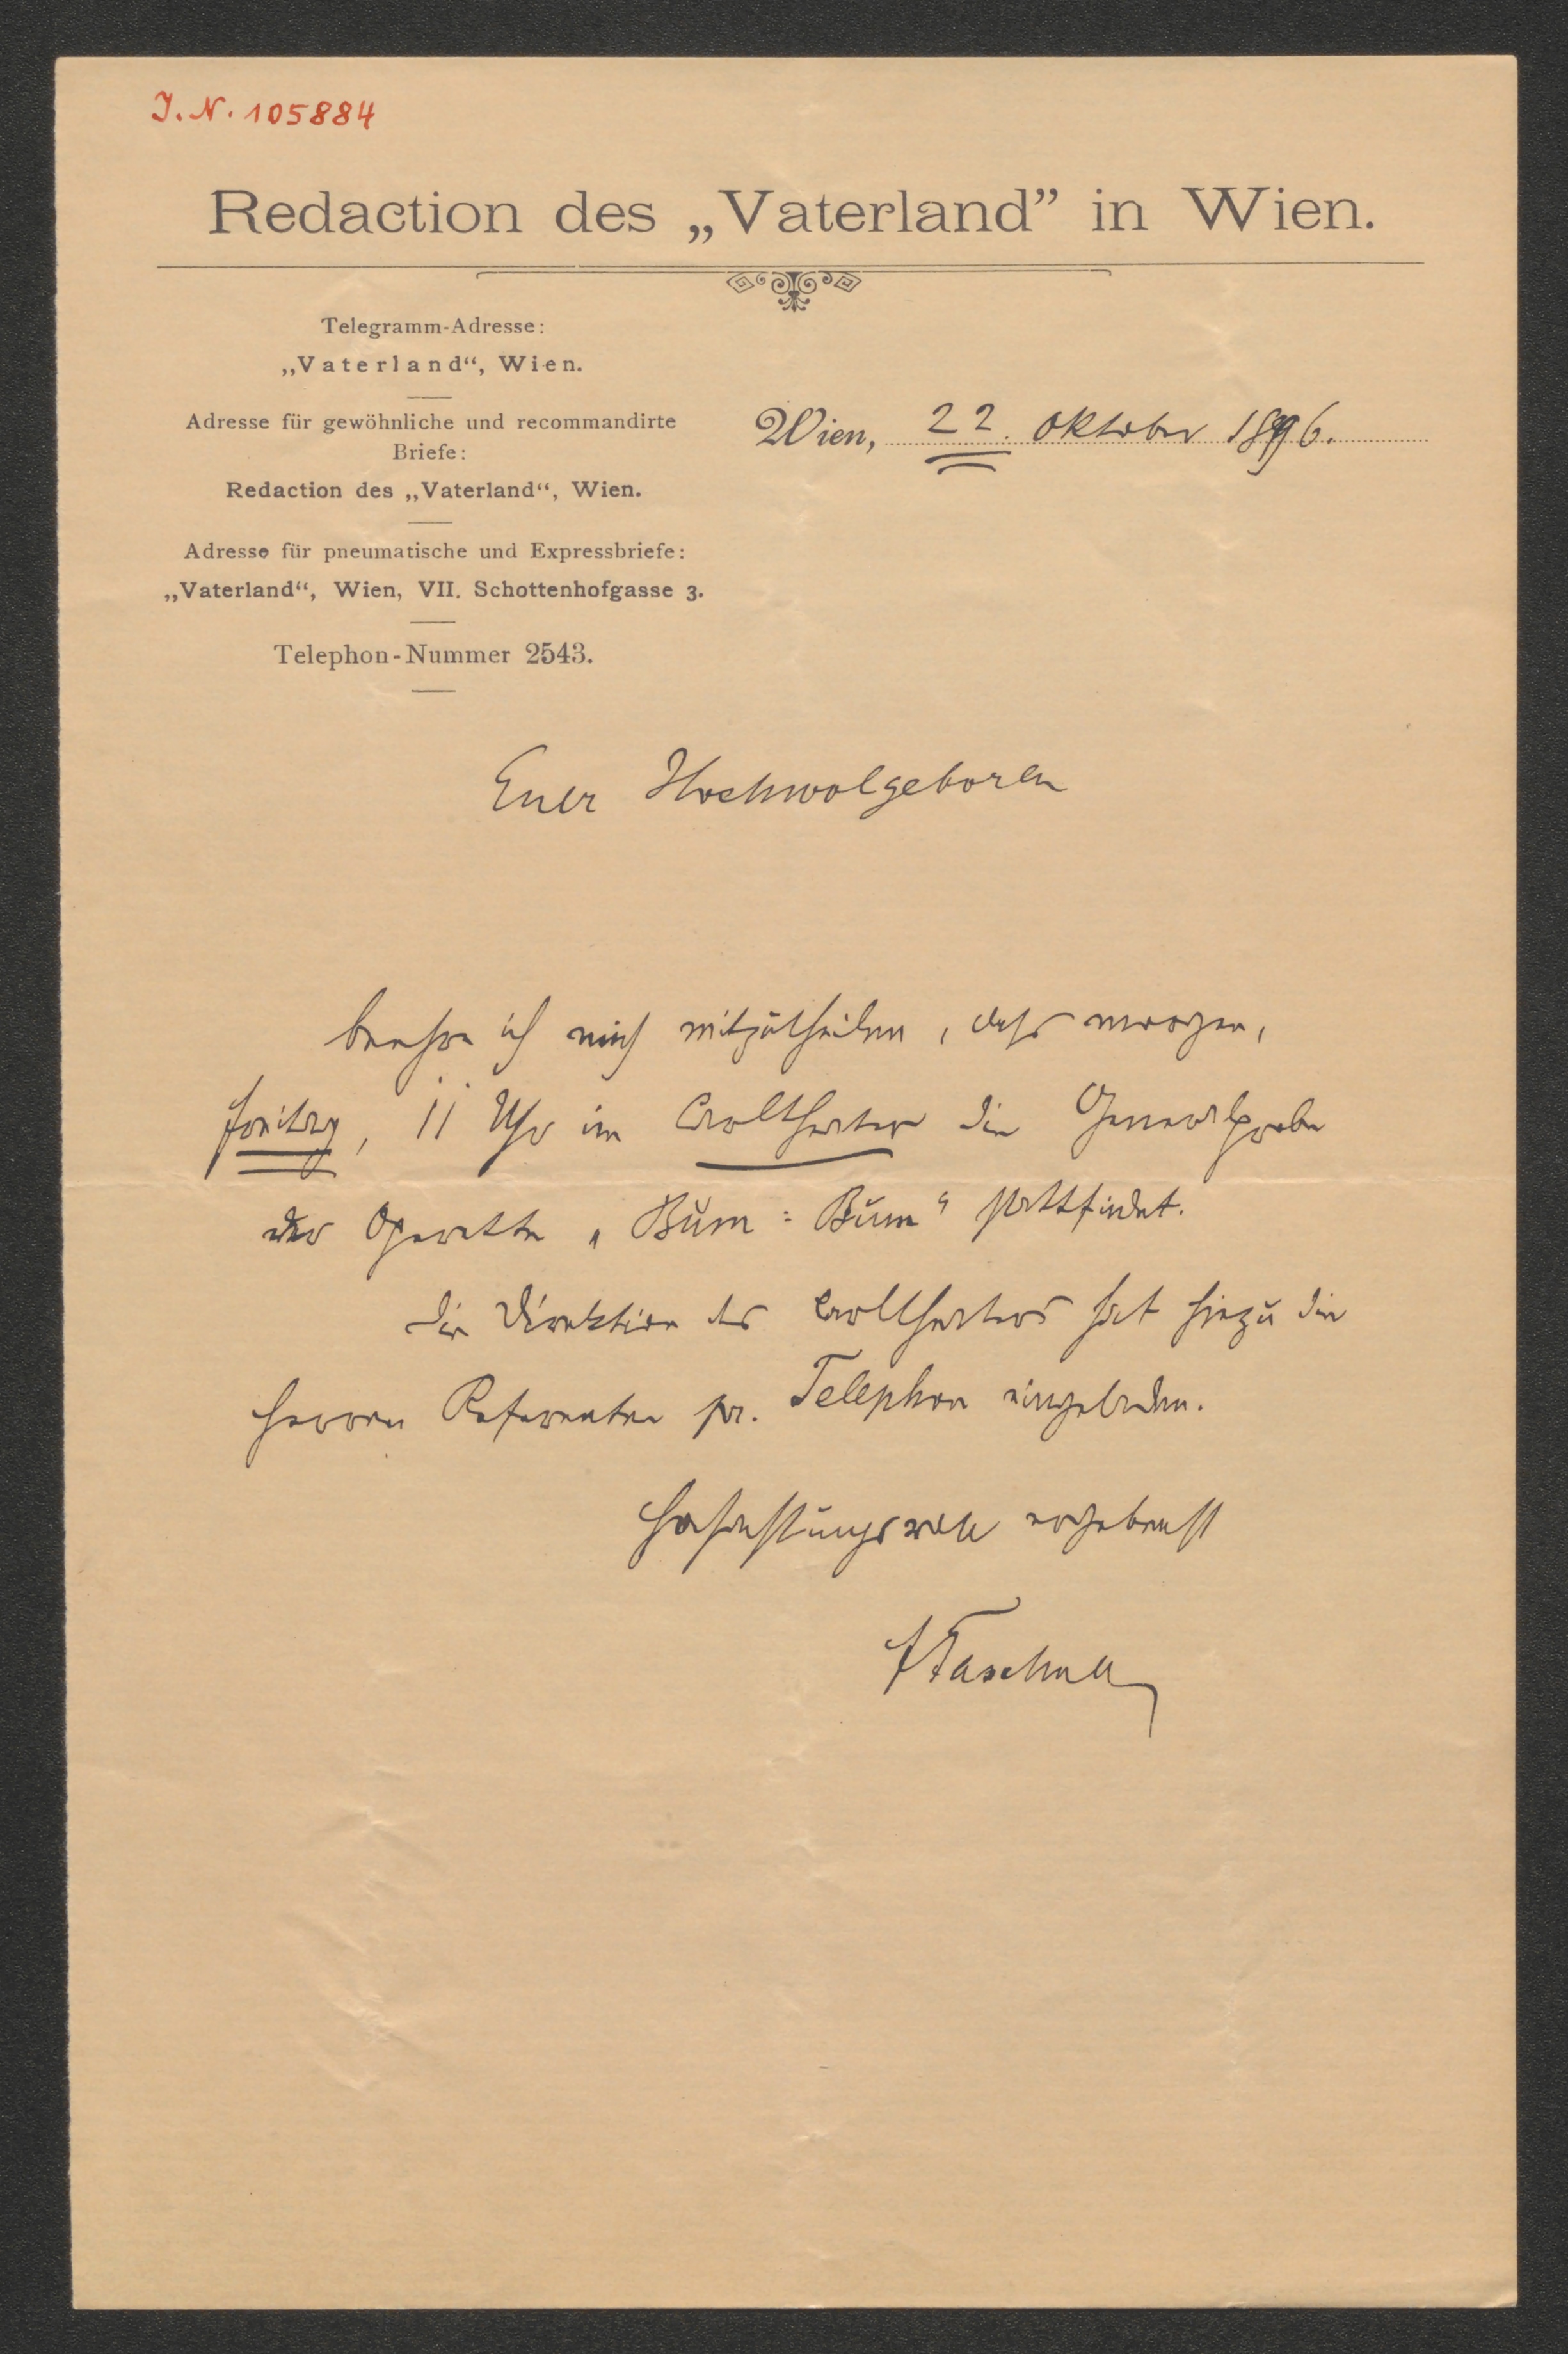 J. N. 105884
Redaction des „Vaterland” in Wien.
Telegramm-Adresse:
„Vaterland“, Wien.
Adresse für gewöhnliche und recommandirte
Briefe:
Redaction des „Vaterland“, Wien.
Adresse für pneumatische und Expressbriefe:
„Vaterland“, Wien, VII. Schottenhofgasse 3.
Telephon-Nummer 2543.
Wien, 22. Oktober 1896.
Euer Hochwolgeboren
beehre ich mich mitzutheilen, dass morgen,
Freitag, 11 Uhr im Carltheater die Generalprobe
der Operette „Bum=Bum“ stattfindet.
Die Direktion des Carltheaters hat hiezu die
Herren Referenten pr. Telephon eingeladen.
Hochachtungsvoll ergebenst